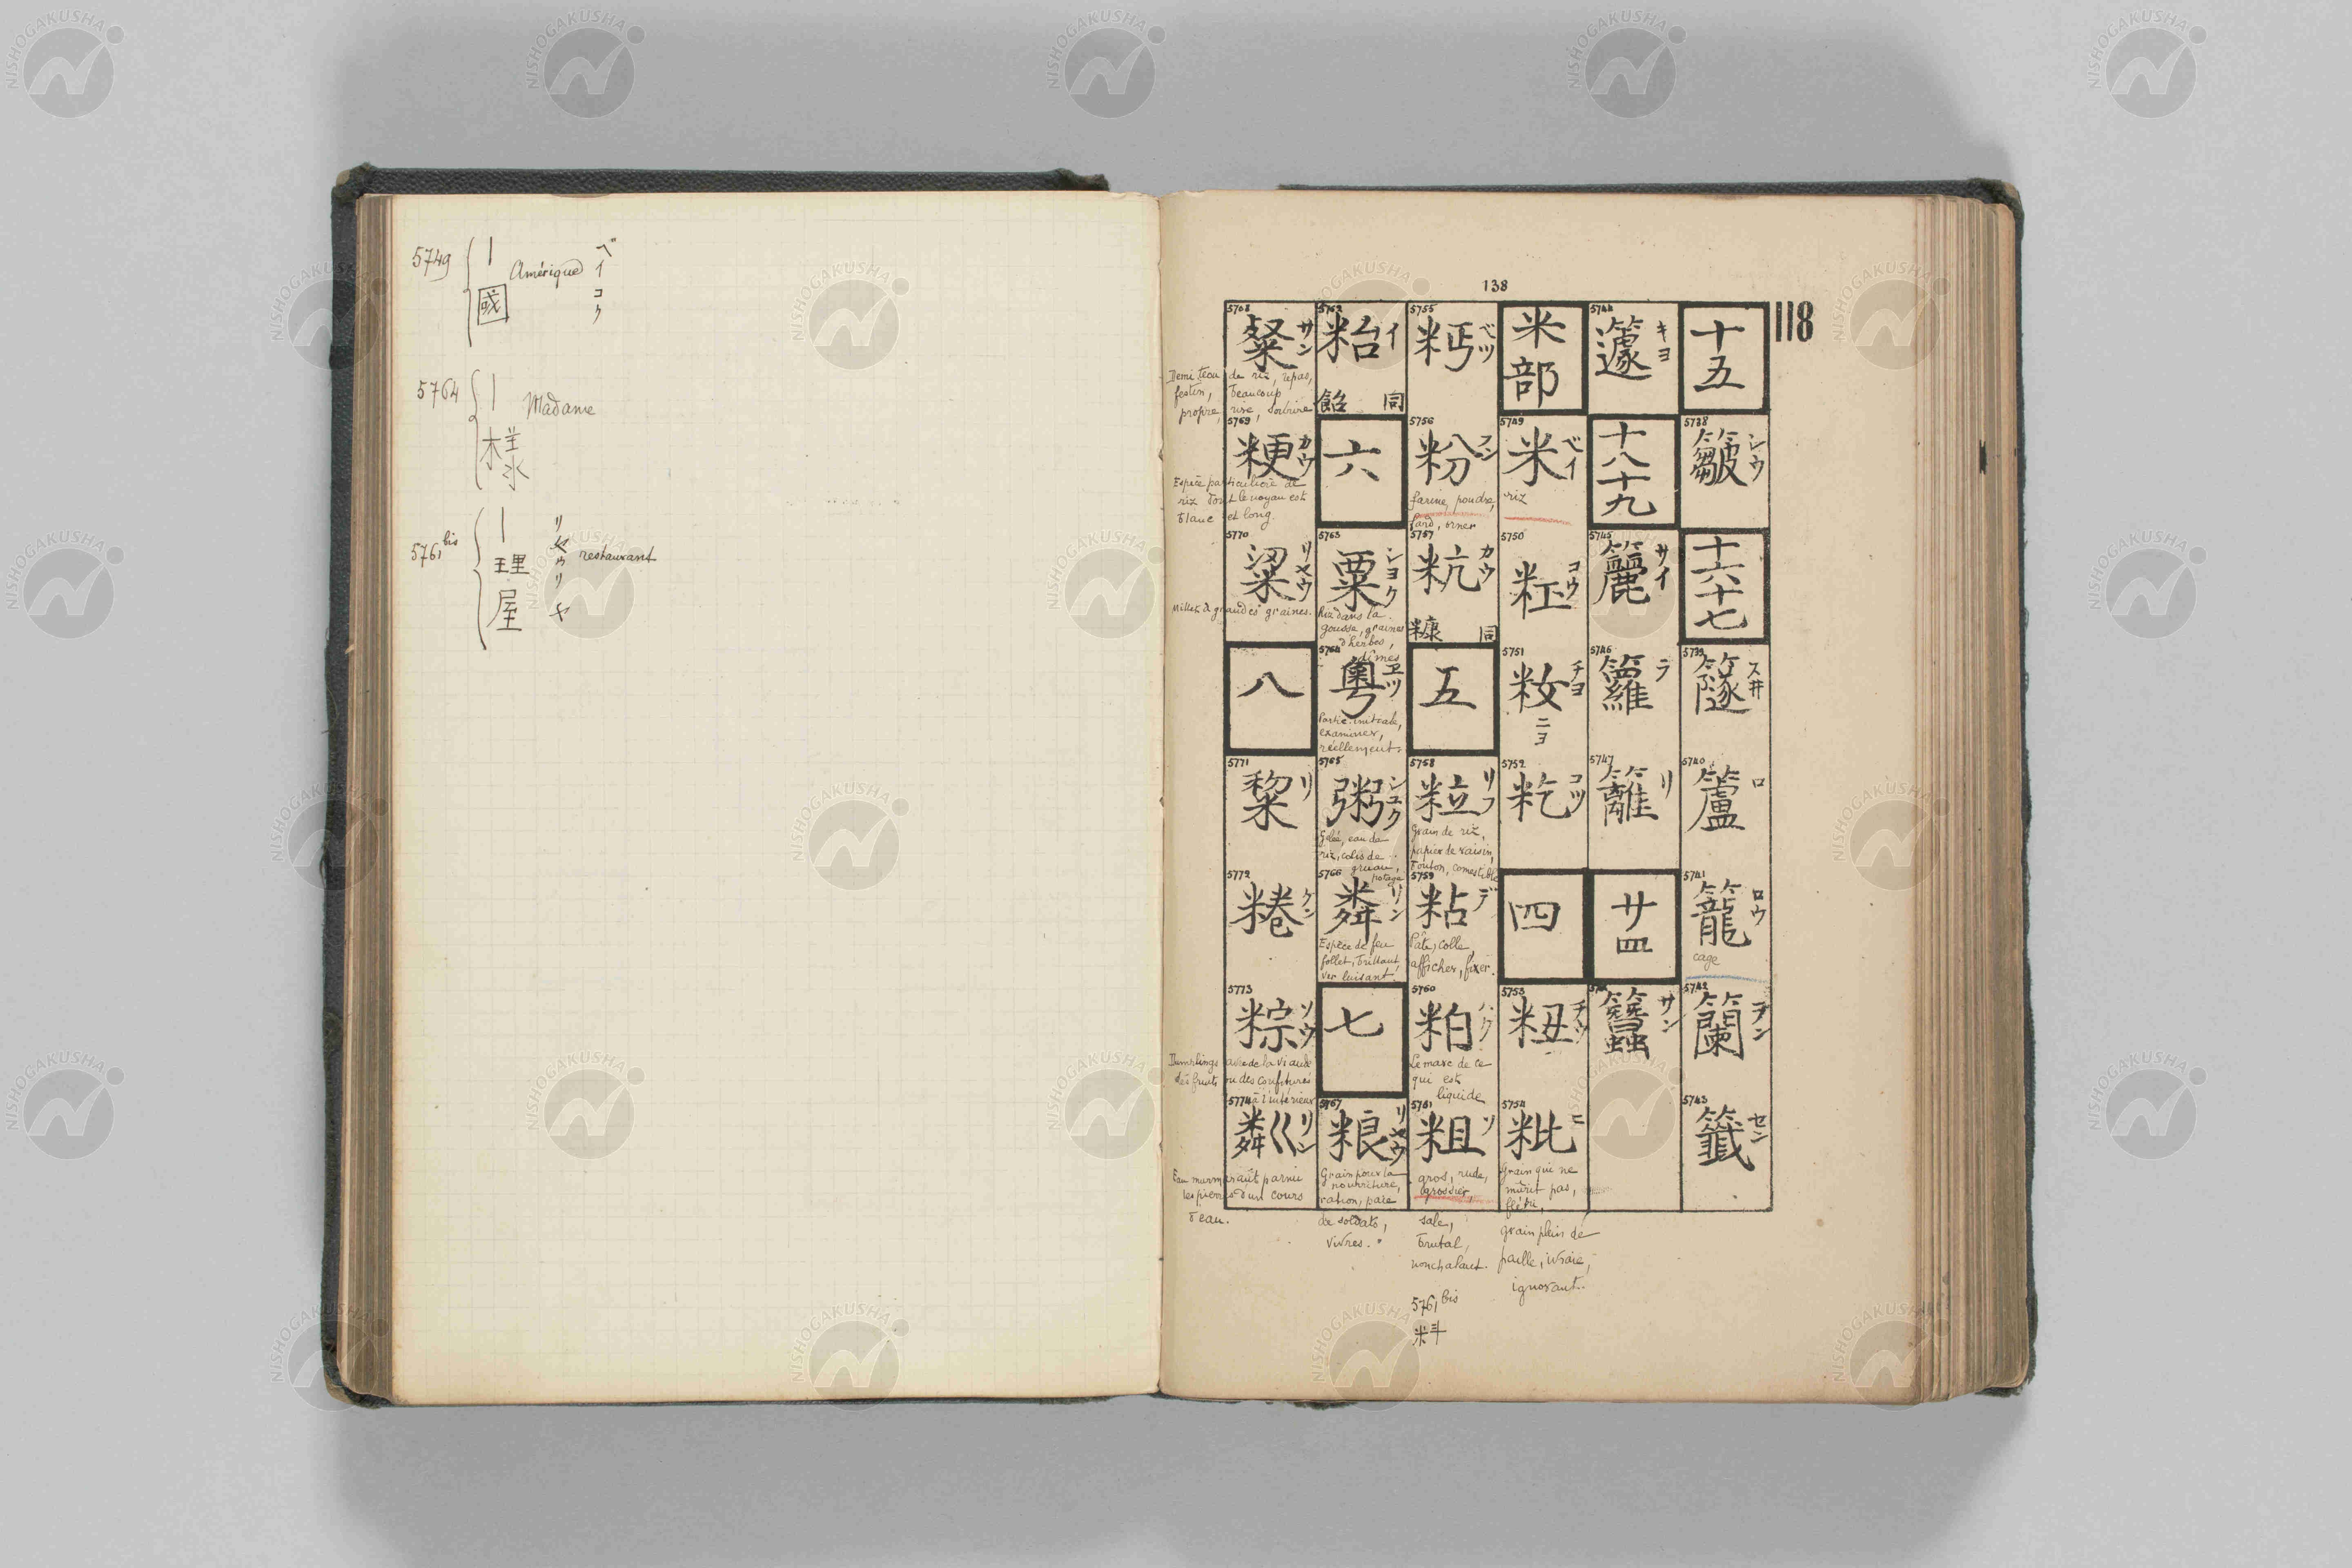 5749
｜
國
Amérique
ベイコク
5764
｜
様
Madame
5761 bis
｜
理
屋
リヤウリヤ
restaurant
138
118
十五
5738
皺 シウ
十六十七
5739
ス井
5740
籚 ロ
5741
籠 ロウ
cage
5742
籣 ラン
5743
籤 セン
5744
籧 キヨ
十八十九
5745
サイ
5746
籮 ラ
5747
籬 リ
廿四
サン
米部
5749
米 ベイ
riz
5750
粠 コウ
5751
籹 チヨ
ニヨ
5752
籺 コツ
四
5753
粈 チウ
5754
粃 ヒ
Grain qui ne
mûrit pas,
flétri,
grain plein de
paille, ivraie,
ignorant.
5755
ベツ
5756
粉 フン
farine, poudre,
fard, orner
5757
粇 カウ
糠 同
五
5758
粒 リフ
Grain de riz,
papier de raisin,
bouton, comestible
5759
粘 デ
Pâte, colle,
afficher, fixer.
5760
粕 ハク
Le marc de ce
qui est
liquide
5761
粗 ソ
gros, rude,
grossier,
sale,
brutal,
nonchalant.
5761 bis
料
5762
粭 イ
飴 同
六
5763
粟 シヨク
Riz dans la
gousse, graines
d'herbes,
dîmes
5764
粵 ヱツ
Partie initiale,
examiner,
réellement
5765
粥 シユク
Gelée, eau de
riz, colis de
gruau,
potage
5766
粦 リン
Espèce de feu
follet, brillant,
ver luisant
七
5767
粮 リヤウ
Grain pour la
nourriture,
ration, paie
de soldats,
vivres.
5768
粲 サン
Demi teau de riz, repas,
festin, beaucoup
propre, rire, sourire
5769
粳 カウ
Espèce particulière de
riz dont le noyau est
blanc et long.
5770
粱 リヤウ
Millet à grandes graines.
八
5771
リ
5772
粣 ケン
5773
粽 ソウ
Dumplings avec de la viande
des fruits ou des confitures
à l'intérieur
5774
粼 リン
Eau murmurant parmi
les pierres d'un cours
d'eau.